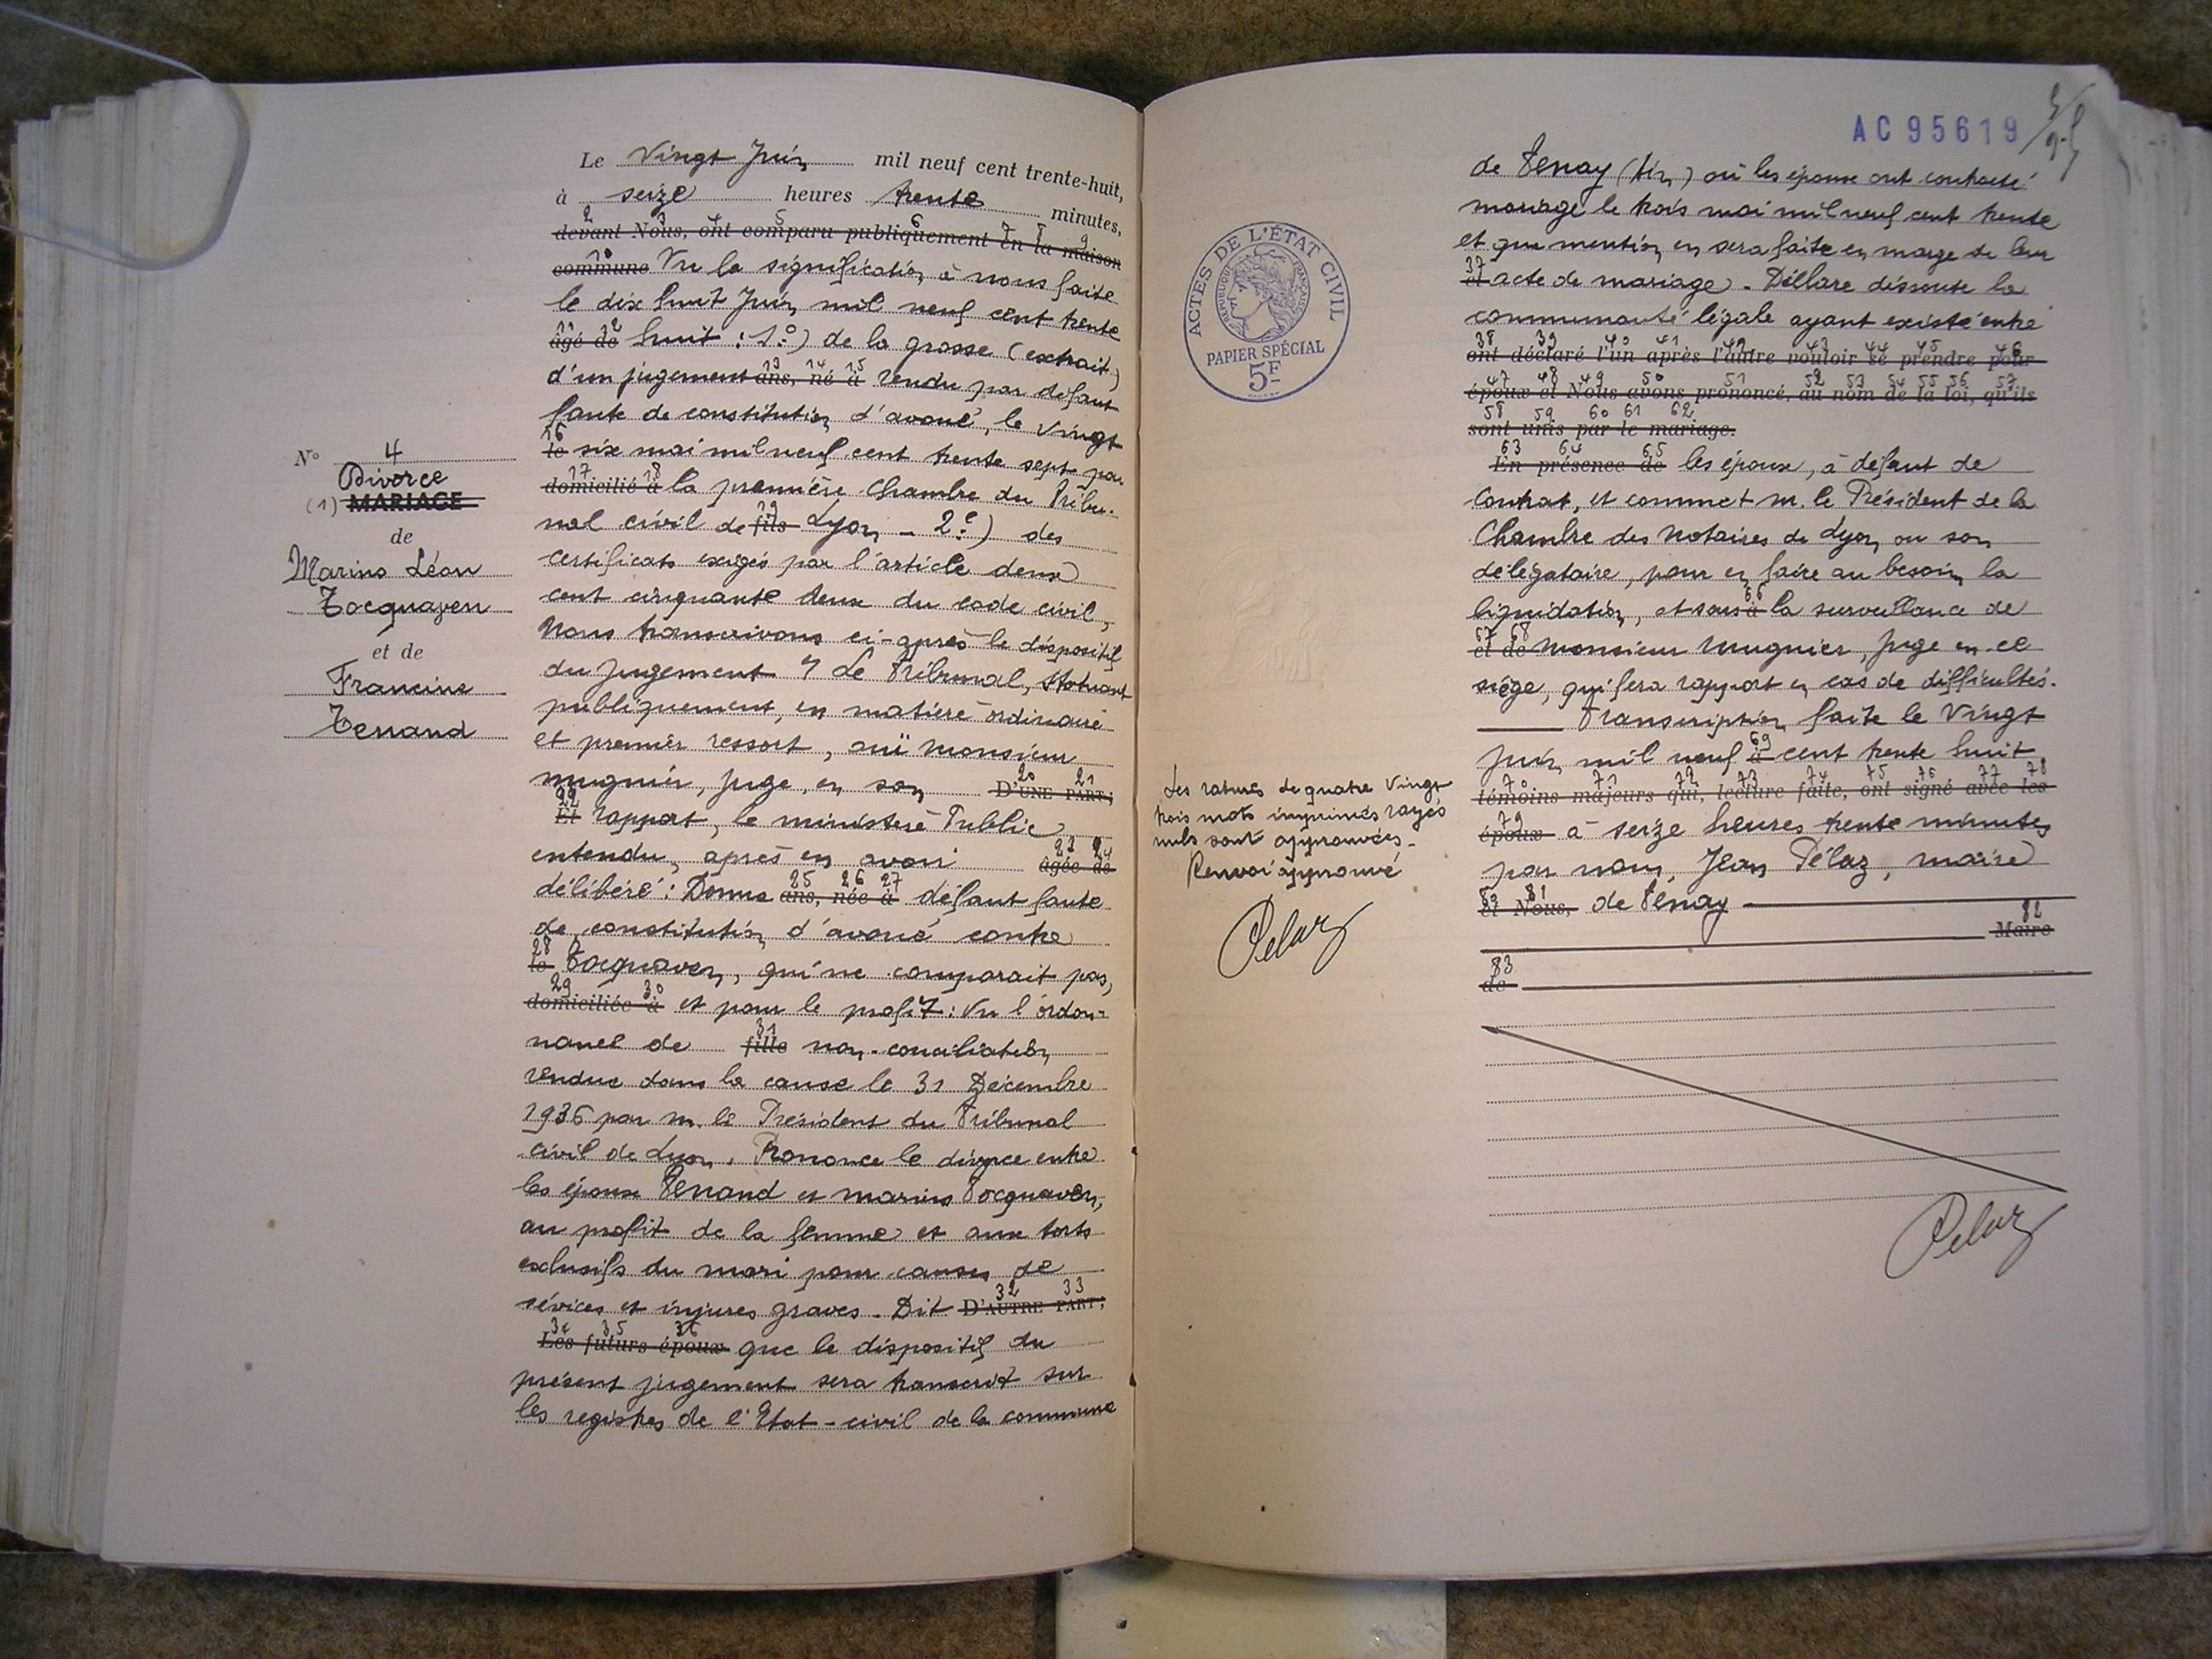 Le Vingt Juin mil neuf cent trente-huit,
à seize heures trente minutes,
devant Nous, ont comparu publiquement en la maison
commune Vu la signification à nous faite
le dix huit Juin mil neuf cent trente
âgé de huit : 1°) de la grosse (extrait)
d'un jugement ans, né à rendu par défaut
faute de constitution d'avoué, le vingt
le six mai mil neuf cent trente sept par
domicilié à la première Chambre du Tribu-
nal civil de fils Lyon - 2°) des
certificats exigés par l'article deux
cent cinquante deux du code civil,
Nous transcrivons ci-après le dispositif
du jugement Le Tribunal, statuant
publiquement, en matière ordinaire
et premier ressort, ouï Monsieur
Mugnier, Juge, en son D'UNE PART;
Et rapport, le ministère Public
entendu, après en avoir âgée de
délibéré : Donne ans, née à défaut faute
de constitution d'avoué contre
le Tocquaven, qui ne comparait pas,
domiciliée à et pour le profit : Vu l'ordon-
nance de fille non-conciliation
rendue dans la cause le 31 Décembre
1936 par M. le Président du Tribunal
civil de Lyon. Prononce le divorce entre
les époux Terrand et Marius Tocquaven,
au profit de la femme et aux torts
exclusifs du mari pour causes de
sévices et injures graves. Dit D'AUTRE PART;
Les futurs époux que le dispositif du
présent jugement sera transcrit sur
les registres de l'Etat-civil de la commune
N° 4
Divorce
(1) MARIAGE
de
Marius Léon
Tocquaven
et de
Francine
Terrand
AC 95619
ACTES DE L'ÉTAT CIVIL
RÉPUBLIQUE FRANÇAISE
PAPIER SPÉCIAL
5F
de Tenay (Ain) où les époux ont contracté
mariage le trois mai mil neuf cent trente
et que mention en sera faite en marge de leur
et acte de mariage. Déclare dissoute la
communauté légale ayant existé entre
ont déclaré l'un après l'autre vouloir se prendre pour
époux et Nous avons prononcé, au nom de la loi, qu'ils
sont unis par le mariage.
En présence de les époux, à défaut de
Contrat, et commet M. le Président de la
Chambre des Notaires de Lyon, ou son
délégataire, pour en faire au besoin la
liquidation, et sous à la surveillance de
et de Monsieur Mugnier, Juge en ce
siège, qui fera rapport en cas de difficultés.
Transcription faite le Vingt
Juin mil neuf à cent trente huit
témoins majeurs qui, lecture faite, ont signé avec les
époux à seize heures trente minutes
par nous, Jean Pélaz, maire
et Nous, de Tenay
Maire
de
Les ratures de quatre vingt
trois mots imprimés rayés
nuls sont approuvées.
Renvoi approuvé
Pelaz
Pelaz